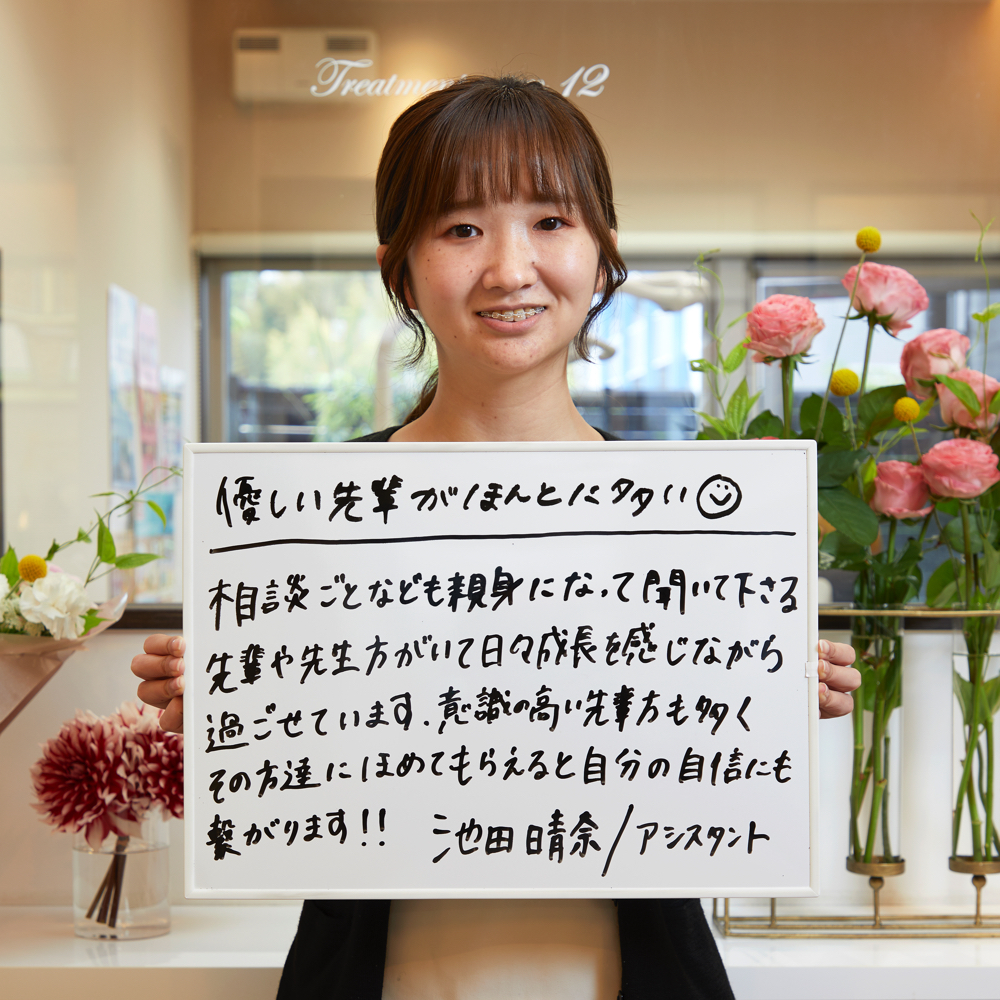 Treatment 12
優しい先輩がほんとに多い
相談ごとなども親身になって聞いて下さる
先輩や先生方がいて日々成長を感じながら
過ごせています。意識の高い先輩方も多く
その方達にほめてもらえると自分の自信にも
繋がります!!
池田晴奈/アシスタント